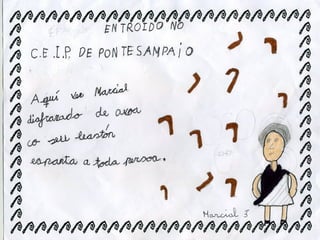 ENTROIDO NO
C.E.I.P. DE PONTESAMPAIO
Aquí vai Marcial
disfrazado de avoa
co seu bastón
espanta a toda persoa.
Marcial 3